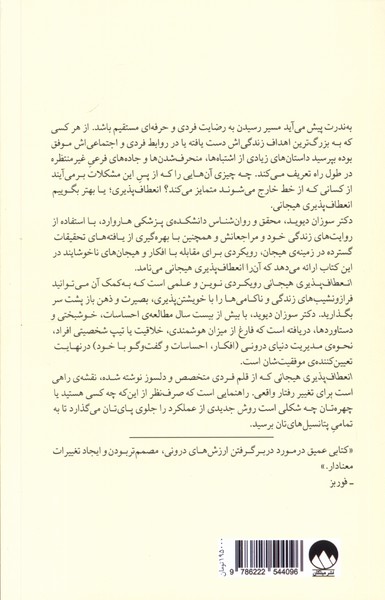 به‌ندرت پیش می‌آید مسیر رسیدن به رضایت فردی و حرفه‌ای مستقیم باشد. از هر کسی
که به بزرگ‌ترین اهداف زندگی‌اش دست یافته یا در روابط فردی و اجتماعی‌اش موفق
بوده بپرسید داستان‌های زیادی از اشتباه‌ها، منحرف‌شدن‌ها و جاده‌های فرعیِ غیرمنتظره
در طول راه تعریف می‌کند. چه چیزی آن‌هایی را که از پس این مشکلات برمی‌آیند
از کسانی که از خط خارج می‌شوند متمایز می‌کند؟ انعطاف‌پذیری؛ یا بهتر بگوییم
انعطاف‌پذیری هیجانی.
دکتر سوزان دیوید، محقق و روان‌شناس دانشکده‌ی پزشکی هاروارد، با استفاده از
روایت‌های زندگی خود و مراجعانش و همچنین با بهره‌گیری از یافته‌های تحقیقات
گسترده در زمینه‌ی هیجان، رویکردی برای مقابله با افکار و هیجان‌های ناخوشایند در
این کتاب ارائه می‌دهد که آن را انعطاف‌پذیری هیجانی می‌نامد.
انعطاف‌پذیری هیجانی رویکردی نوین و علمی است که به‌کمک آن می‌توانید
فرازونشیب‌های زندگی و ناکامی‌ها را با خویشتن‌پذیری، بصیرت و ذهن باز پشت سر
بگذارید. دکتر سوزان دیوید، با بیش از بیست سال مطالعه‌ی احساسات، خوشبختی و
دستاوردها، دریافته است که فارغ از میزان هوشمندی، خلاقیت یا تیپ شخصیتی افراد،
نحوه‌ی مدیریت دنیای درونی (افکار، احساسات و گفت‌وگو با خود) درنهایت
تعیین‌کننده‌ی موفقیت‌شان است.
انعطاف‌پذیری هیجانی که از قلم فردی متخصص و دلسوز نوشته شده، نقشه‌ی راهی
است برای تغییر رفتار واقعی. راهنمایی است که صرف‌نظر از این‌که چه کسی هستید یا
چهره‌تان چه شکلی است روش جدیدی از عملکرد را جلوی پای‌تان می‌گذارد تا به
تمامیِ پتانسیل‌های‌تان برسید.
«کتابی عمیق درمورد دربرگرفتن ارزش‌های درونی، مصمم‌تربودن و ایجاد تغییرات
معنادار.»
ـ فوربز
۱۹۵۰۰۰ تومان
9 786222 544096
نشر میلکان